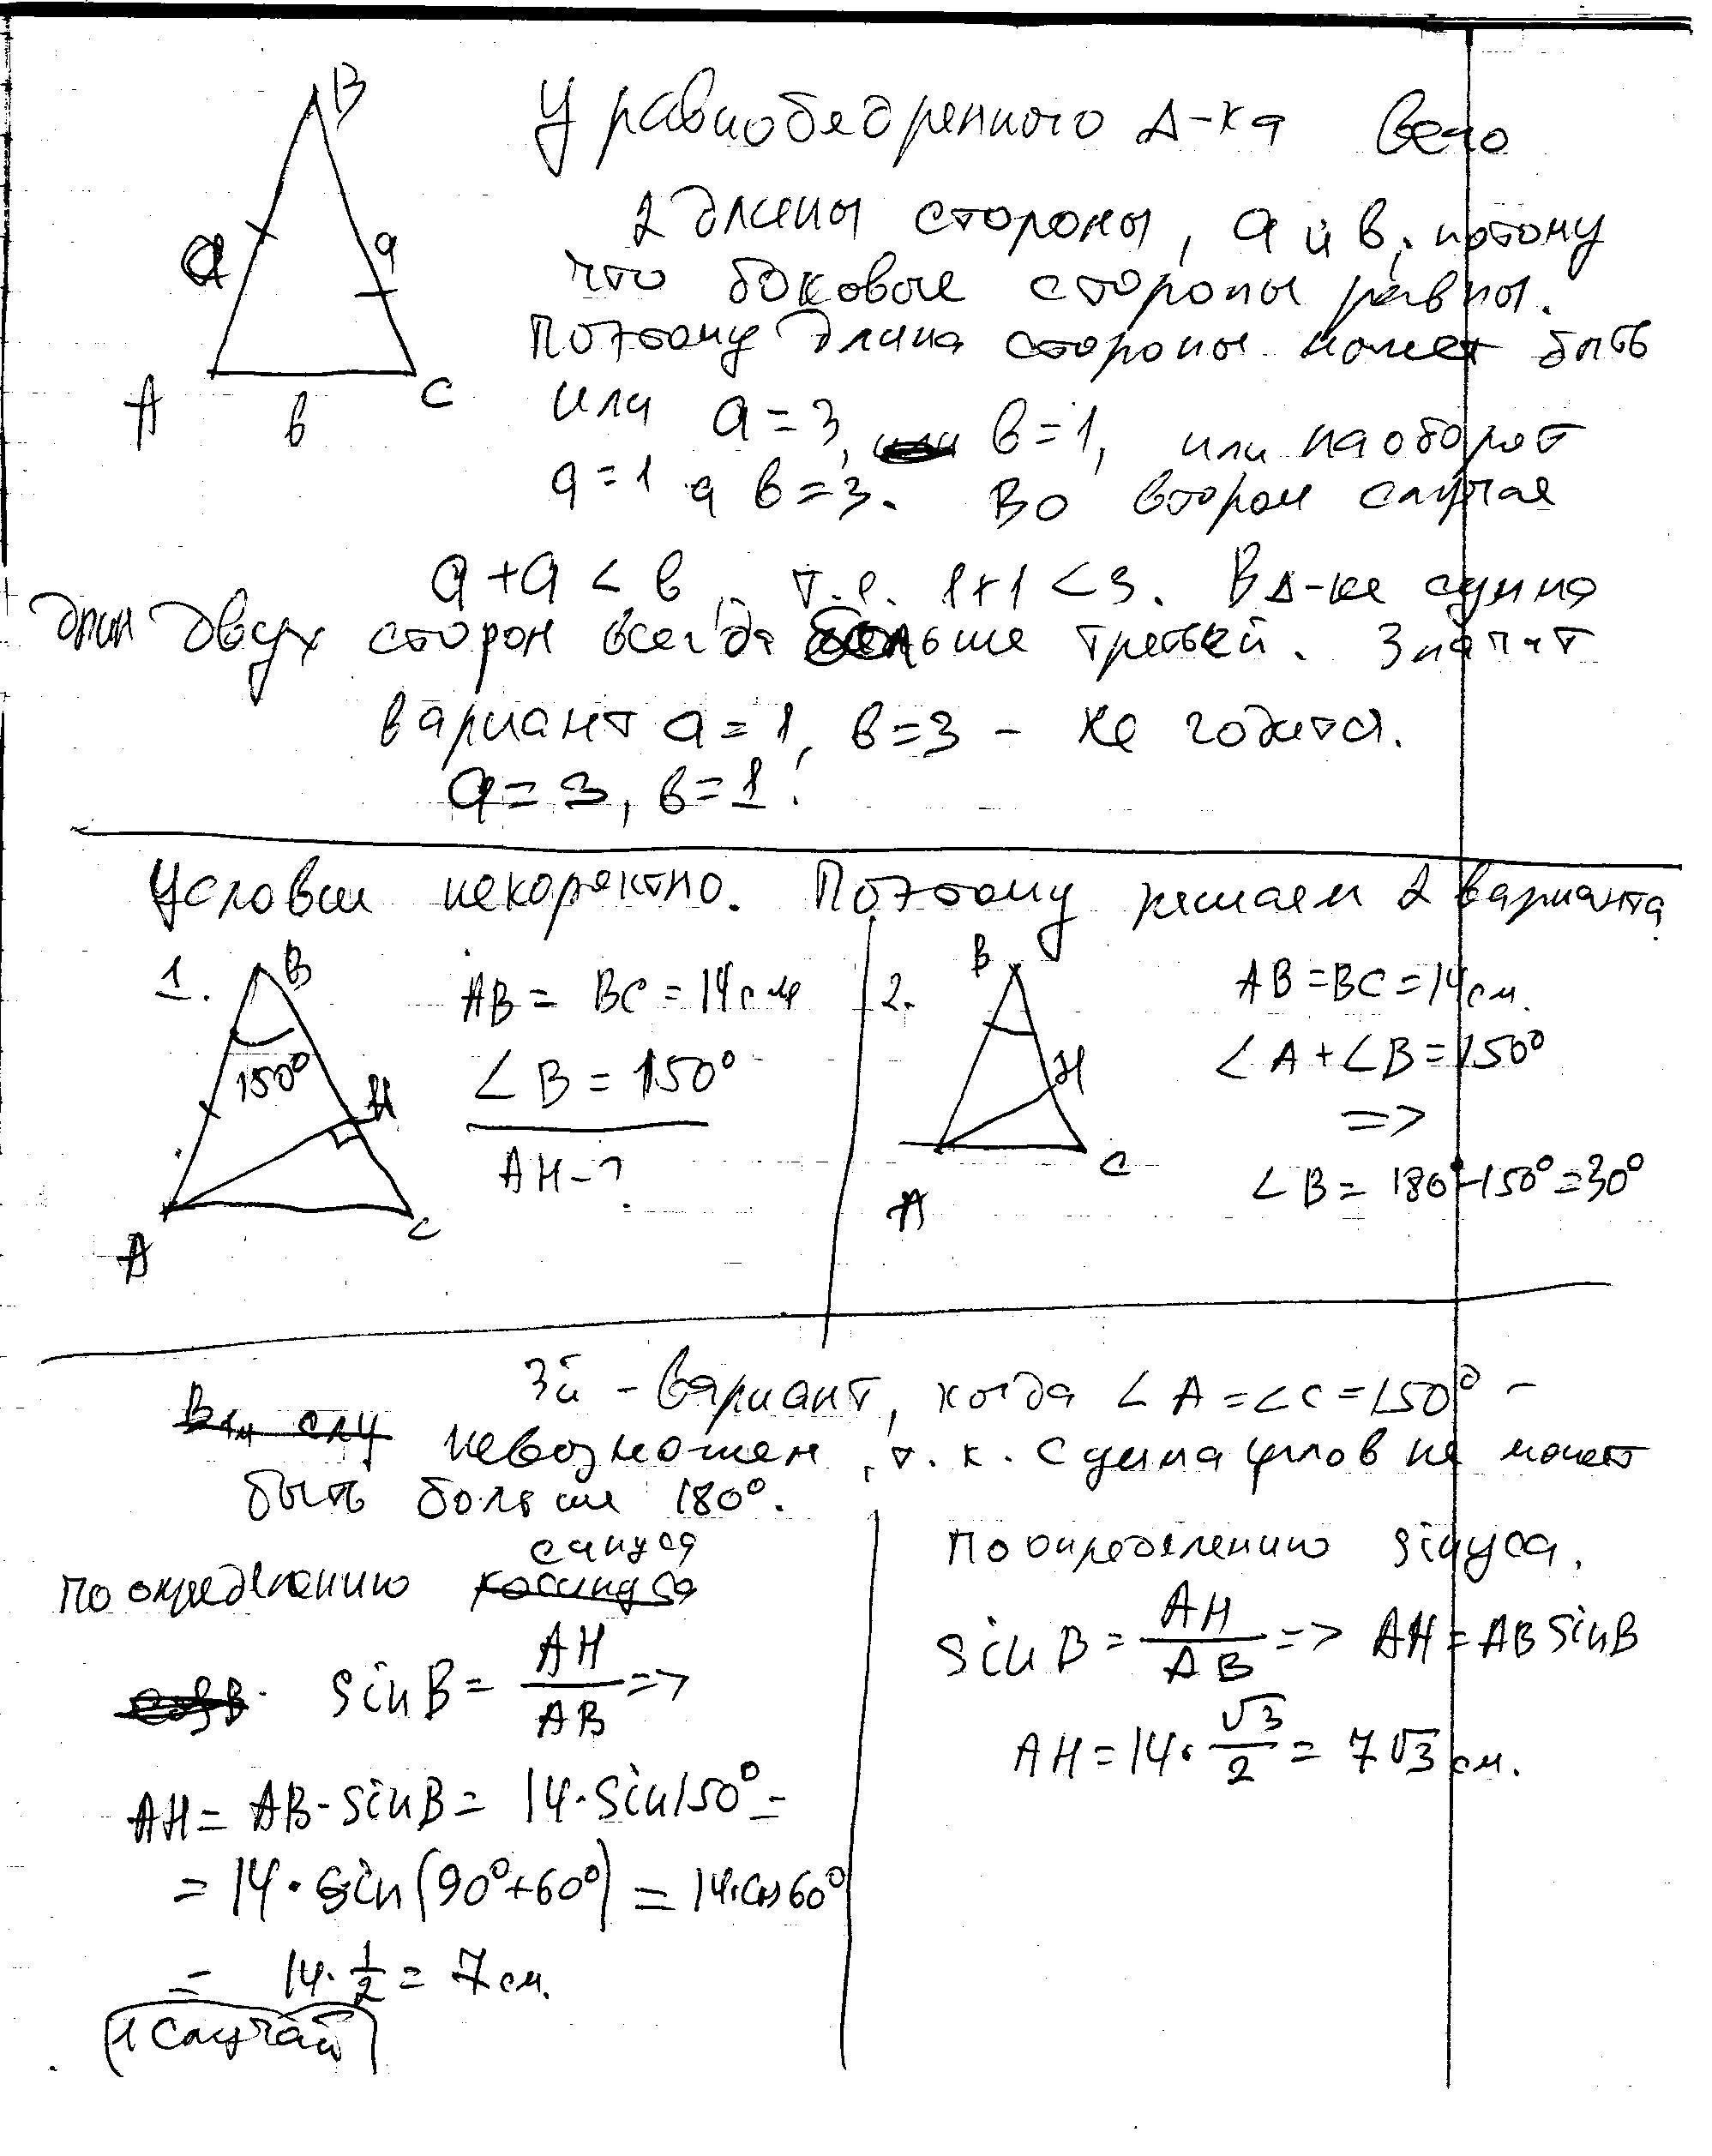 B
У равнобедренного Δ-ка всего
2 длины стороны, a и в, потому
a
a
что боковые стороны равны.
Поэтому длина стороны может быть
A
в
C
или a = 3, в = 1, или наоборот
a = 1 а в = 3. Во втором случае
a + a < в, т.е. 1+1 < 3. В Δ-ке сумма
длин двух сторон всегда больше третьей. Значит
вариант a = 1, в = 3 – не годится.
a = 3, в = 1.
Условие некоректно. Поэтому решаем 2 варианта.
1.
B
150°
H
A
C
AB = BC = 14 см
∠B = 150°
AH – ?
2.
B
H
A
C
AB = BC = 14 см.
∠A + ∠B = 150°
=>
∠B = 180° – 150° = 30°
3й – вариант, когда ∠A = ∠C = 150° –
невозможен, т.к. сумма углов не может
быть больше 180°.
синуса
По определению косинуса
sin B = AH/AB =>
AH = AB · sin B = 14 · sin 150° =
= 14 · sin(90° + 60°) = 14 · cos 60°
= 14 · 1/2 = 7 см.
1 случай
По определению sинуса.
sin B = AH/AB => AH = AB sin B
AH = 14 · √3/2 = 7√3 см.